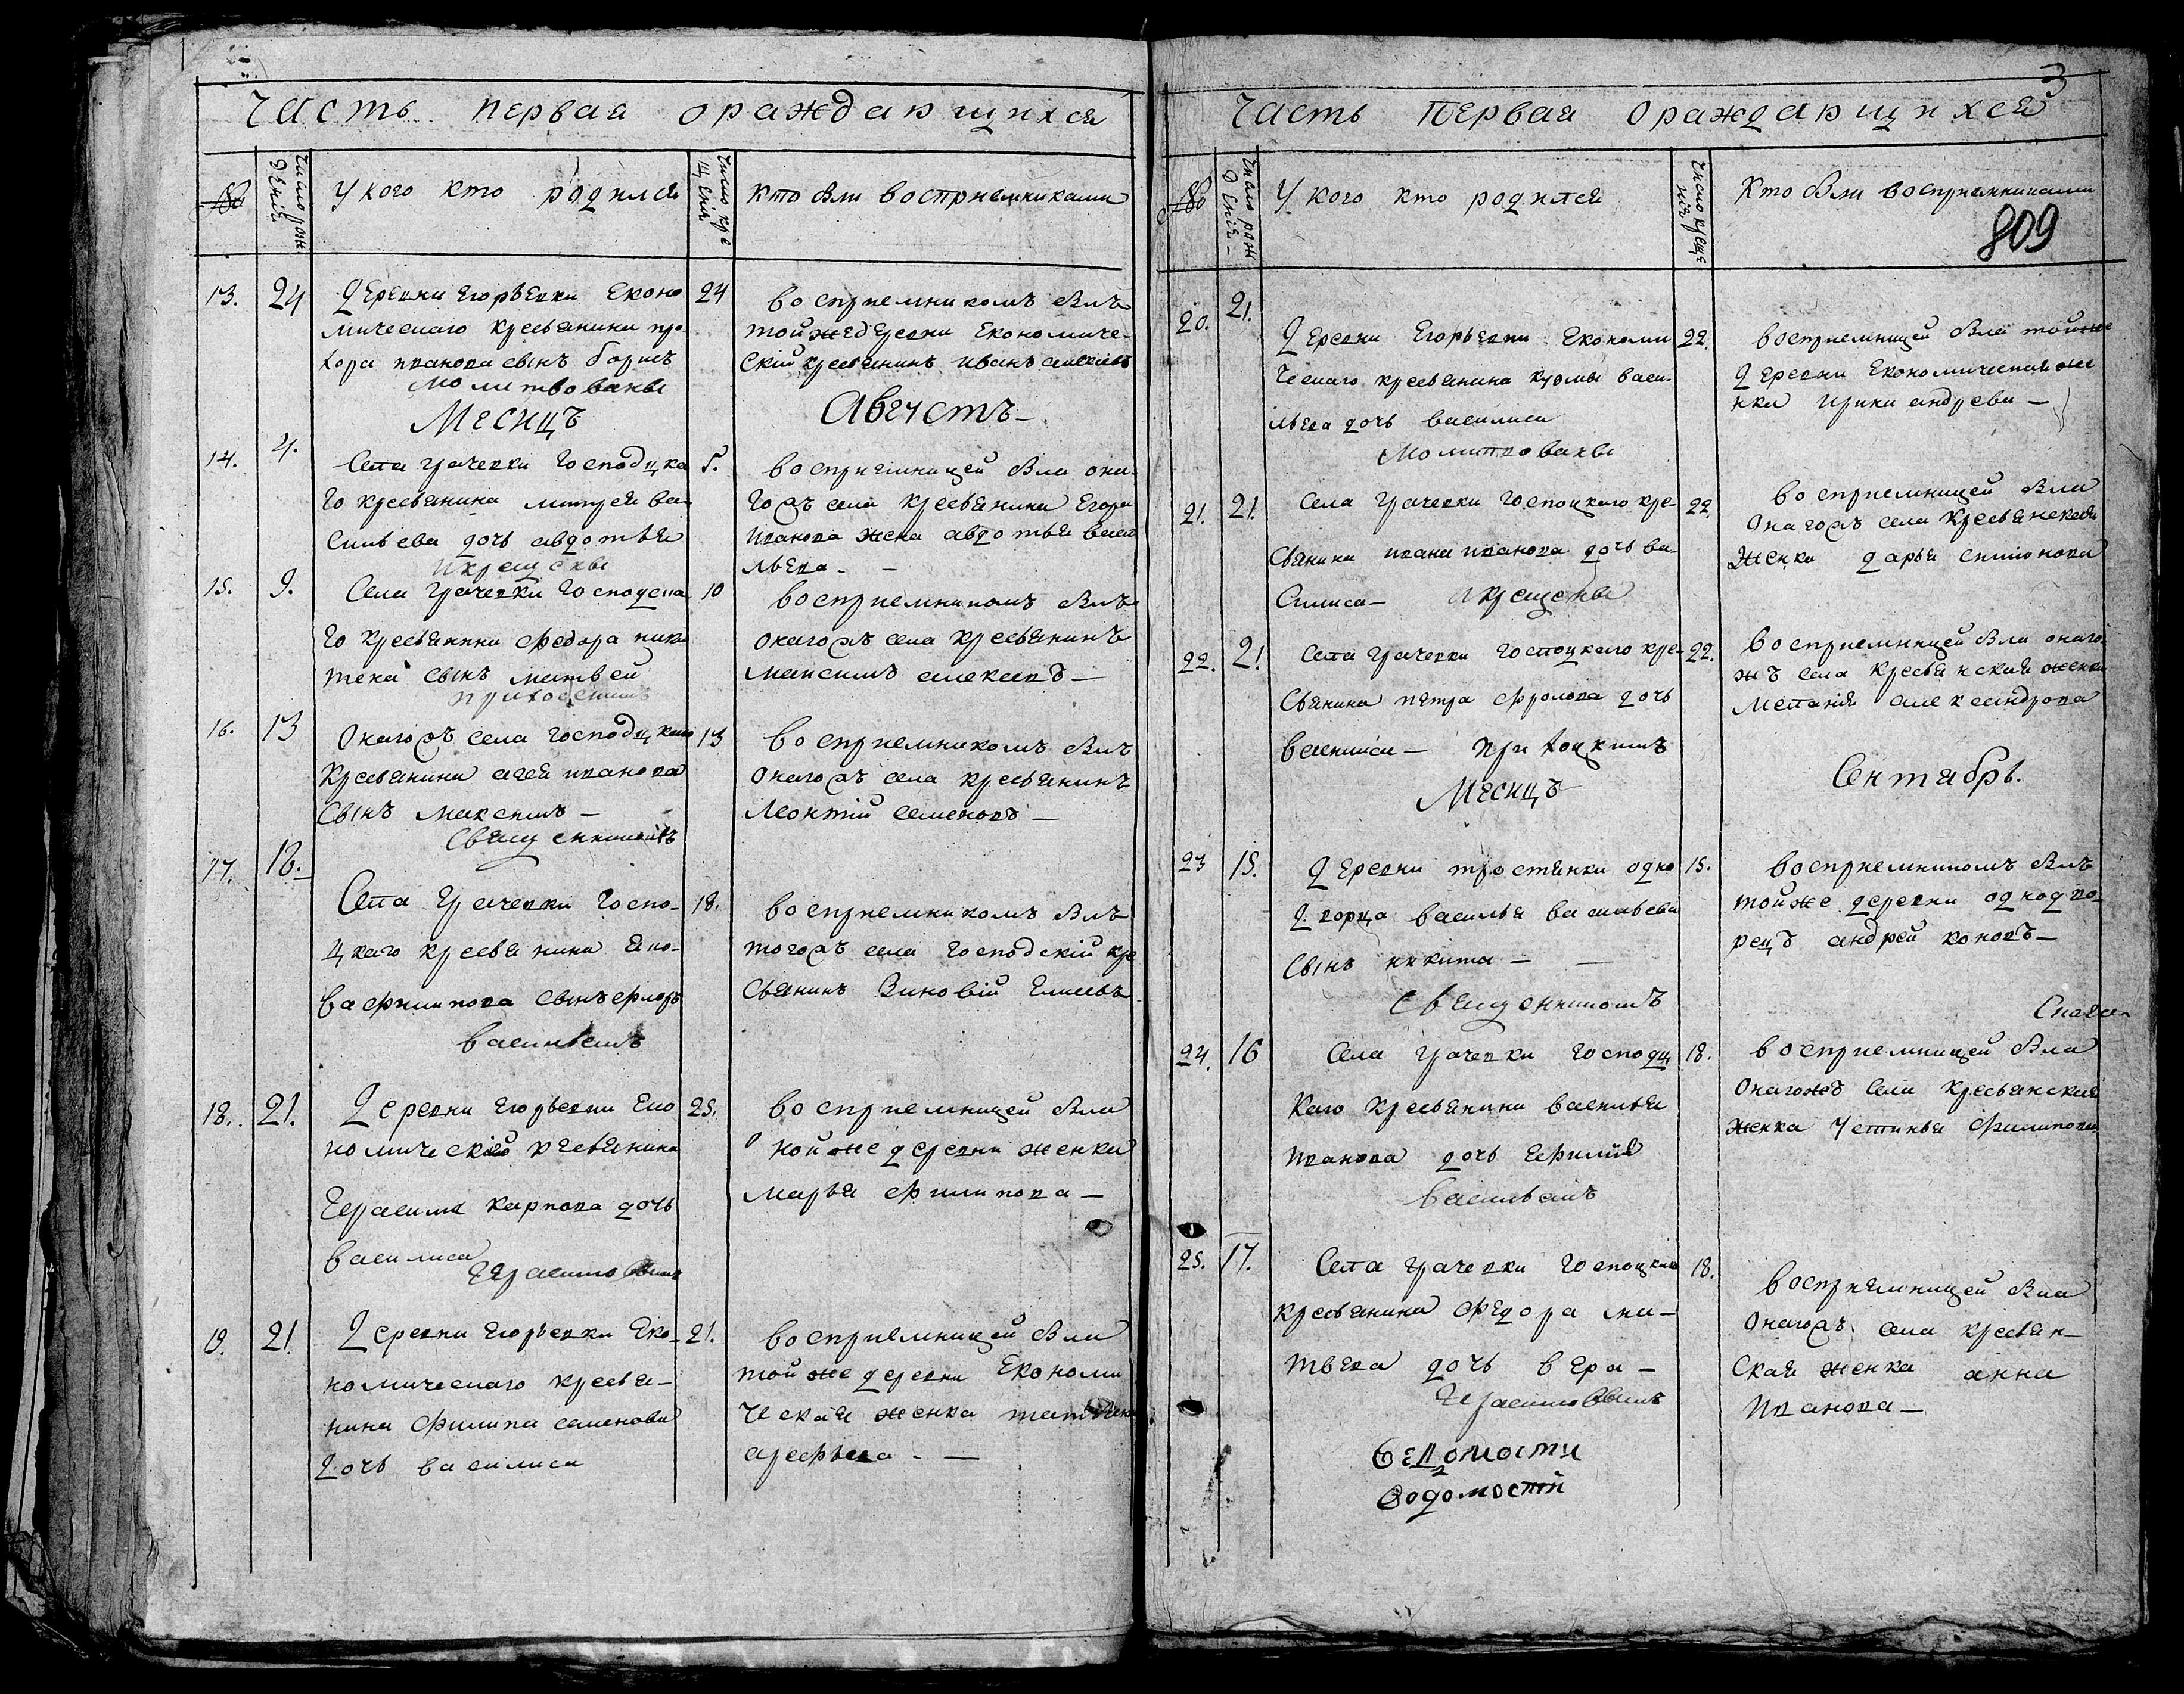 Часть первая ораждающихся
№
Число рож
дения
У кого кто родился
Число кре
щения
Кто был восприемниками
13. 24 Деревни Егорьевки Еконо 24
мическаго кресьянина про
хора иванова сынъ борисъ
молитвованы
восприемникомъ былъ
тойже деревни Економиче-
ский кресьянинъ иванъ алексевъ
Месицъ Августъ
14. 4. Села грачевки Господцка 5.
го кресьянина митрея ва-
сильева дочь авдотья
и крещены
восприемницей была она
гожъ села кресьянина Егора
иванова жена авдотья васи
льева -
15. 9. Села грачевки Господска 10
го кресьянина Федора ники
тена сынъ матвей
восприемникомъ былъ
онагожъ села кресьянинъ
максимъ алексевъ -
16. 13 Онагожъ села господцкаго 13
кресьянина агея иванова
сынъ максимъ -
Священникомъ
восприемникомъ былъ
онагожъ села кресьянинъ
леонтий семеновъ -
17. 18. Села грачевки Госпо- 18.
цкаго кресьянина яко-
ва филипова сынъ флоръ
васильемъ
восприемникомъ былъ
тогожъ села господский кре
сьянинъ Зиновий Елисевъ
18. 21. Деревни Егорьевки Еко 25.
номический кресьянина
Герасима карпова дочь
василиса
Герасимовымъ
восприемницей была
ной же деревни женка
марья филипова -
19. 21. Деревни Егорьевки Еко- 21.
номическаго кресья-
нина Филипа семенова
дочь василиса
восприемницей была
той же деревни Економи
ческая женка татьяна
арефьева. -
3
Часть Первая Ораждающихся
№
Число рож
дения -
У кого кто родился
Число креще
ния
Кто был восприемниками
809
20. 21. Деревни Егорьевки Економи 22.
ческаго кресьянина кузмы васи-
льева дочь василиса
молитвованы
восприемницей была тойже
деревни Економическая же
нка ирина андреева -
21. 21. Села грачевки Господцкаго кре- 22.
сьянина ивана иванова дочь ва
силиса - и крещены
восприемницей была
онагожъ села кресьянская
женка дарья симонова
22. 21. Села грачевки господцкаго кре- 22.
сьянина петра фролова дочь
василиса - приходскимъ
восприемницей была онаго
жъ села кресьянская женка
мелания александрова
Месицъ Сентябрь.
23 15. Деревни тростянки одно 15.
дворца василья васильева
сынъ никита -
Священникомъ
восприемникомъ былъ
тойже деревни однодво
рецъ андрей коновъ -
24. 16 Села грачевки господц 18.
каго кресьянина василья
иванова дочь
васильемъ
восприемницей была
онагожъ села кресьянская
женка Устинья Филипова
25. 17. Села грачевки господцкаго 18.
кресьянина Федора ма-
твева дочь вера -
Герасимовымъ
восприемницей была
онагожъ села кресьян-
ская женка анна
Иванова -